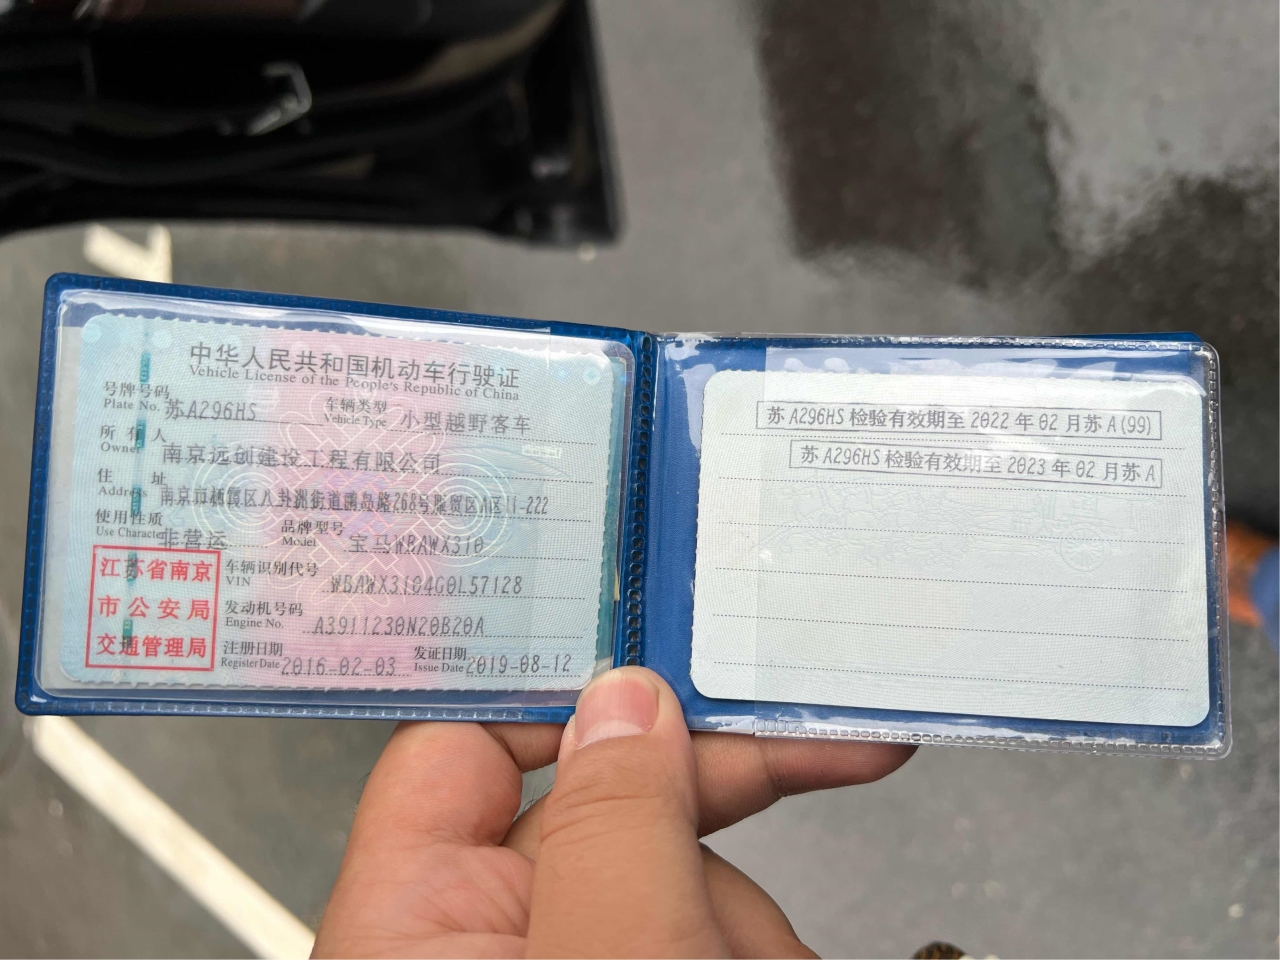 中华人民共和国机动车行驶证
Vehicle License of the People's Republic of China
号牌号码 苏A296HS 车辆类型 小型越野客车
Plate No. Vehicle Type
所有人 南京远创建设工程有限公司
Owner
住址 南京市栖霞区八卦洲街道鹂岛路268号服贸区A区11-222
Address
使用性质 非营运 品牌型号 宝马WBAWX310
Use Character Model
江苏省南京
市公安局
交通管理局
车辆识别代号 WBAWX3104G0L57128
VIN
发动机号码 A3911230N20B20A
Engine No.
注册日期 2016-02-03 发证日期 2019-08-12
Register Date Issue Date
苏A296HS检验有效期至2022年02月苏A(99)
苏A296HS检验有效期至2023年02月苏A